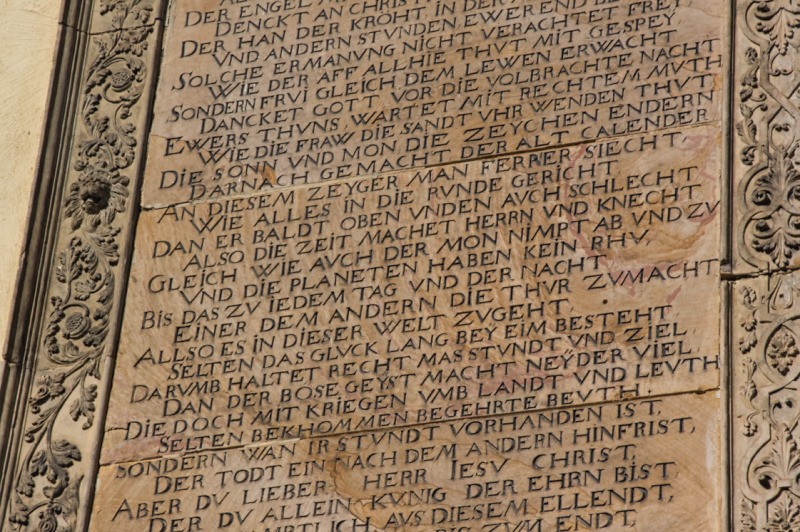 DER ENGEL
DENCKT AN CHRIST
DER HAN DER KRÖHT IN DER
VND ANDERN STVNDEN EWER END BE FREY
SOLCHE ERMANVNG NICHT VERACHTET FREY
WIE DER AFF ALLHIE THVT MIT GESPEY
SONDERN FRVI GLEICH DEM LEWEN ERWACHT
DANCKET GOTT VOR DIE VOLBRACHTE NACHT
EWERS THVNS WARTET MIT RECHTEM MVTH
WIE DIE FRAW DIE SANDTVHR WENDEN THVT
DIE SONN VND MON DIE ZEYCHEN ENDERN
DARNACH GEMACHT DER ALT CALENDER
AN DIESEM ZEYGER MAN FERNER SIECHT,
WIE ALLES IN DIE RVNDE GERICHT
DAN ER BALDT OBEN VNDEN AVCH SCHLECHT
ALSO DIE ZEIT MACHET HERRN VND KNECHT
GLEICH WIE AVCH DER MON NIMPT AB VND ZV
VND DIE PLANETEN HABEN KEIN RHV,
BIS DAS ZV IEDEM TAG VND DER NACHT
EINER DEM ANDERN DIE THVR ZVMACHT
ALLSO ES IN DIESER WELT ZVGEHT
SELTEN DAS GLVCK LANG BEY EIM BESTEHT
DARVMB HALTET RECHT MAS STVNDT VND ZIEL
DAN DER BÖSE GEYST MACHT NEYDER VIEL
DIE DOCH MIT KRIEGEN VMB LANDT VND LEVTH
SELTEN BEKHOMMEN BEGEHRTE BEVTH.
SONDERN WAN IR STVNDT VORHANDEN IST,
DER TODT EIN NACH DEM ANDERN HINFRIST,
ABER DV LIEBER HERR IESV CHRIST,
DER DV ALLEIN KVNIG DER EHRN BIST,
AVS DIESEM ELLENDT,
BIS ZVM ENDT,